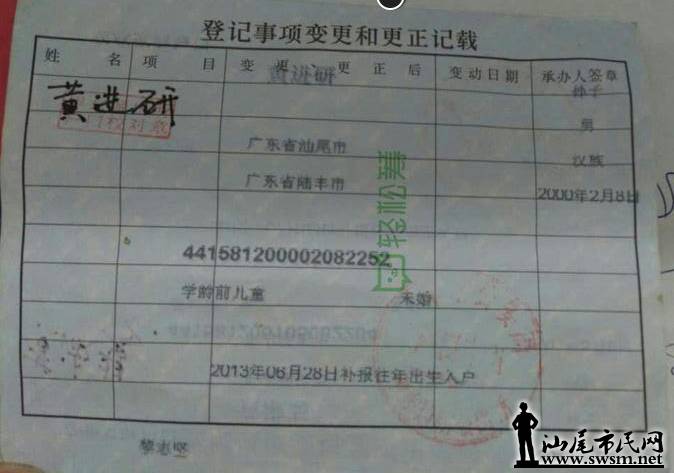 登记事项变更和更正记载
姓 名 项 目 变更、更正后 变动日期 承办人签章
黄进研 孙子
黄进研 男
校对章
广东省汕尾市 汉族
广东省陆丰市 2000年2月8日
441581200002082252
学龄前儿童 未婚
2013年06月28日补报往年出生入户
黎志坚
轻松筹
汕尾市民网
www.swsm.net